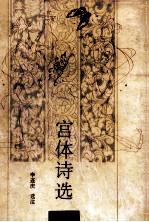 宫体诗选
选注